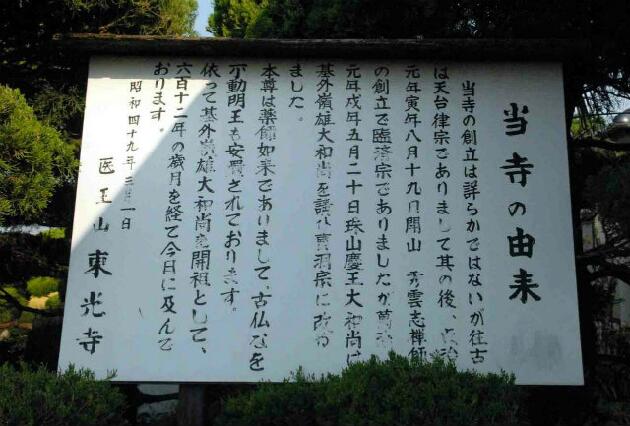 当寺の由来
当寺の創立は詳らかではないが往古
は天台律宗でありまして其の後、貞治
元年寅年八月十九日開山 秀雲志禅師
の創立で臨済宗でありましたが
元年戌年五月二十日珠山慶王大和尚は
基外嶺雄大和尚を請し曹洞宗に改め
ました。
本尊は薬師如来でありまして、古仏なを
不動明王も安置されております。
依って基外嶺雄大和尚を開祖として、
六百十二年の歳月を経て今日に及んで
おります。
昭和四十九年三月一日
医王山 東光寺